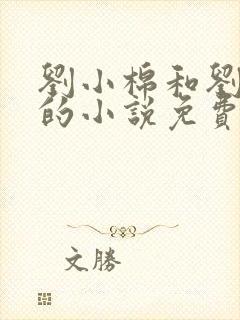 劉小棉和劉
的小說免費
文勝